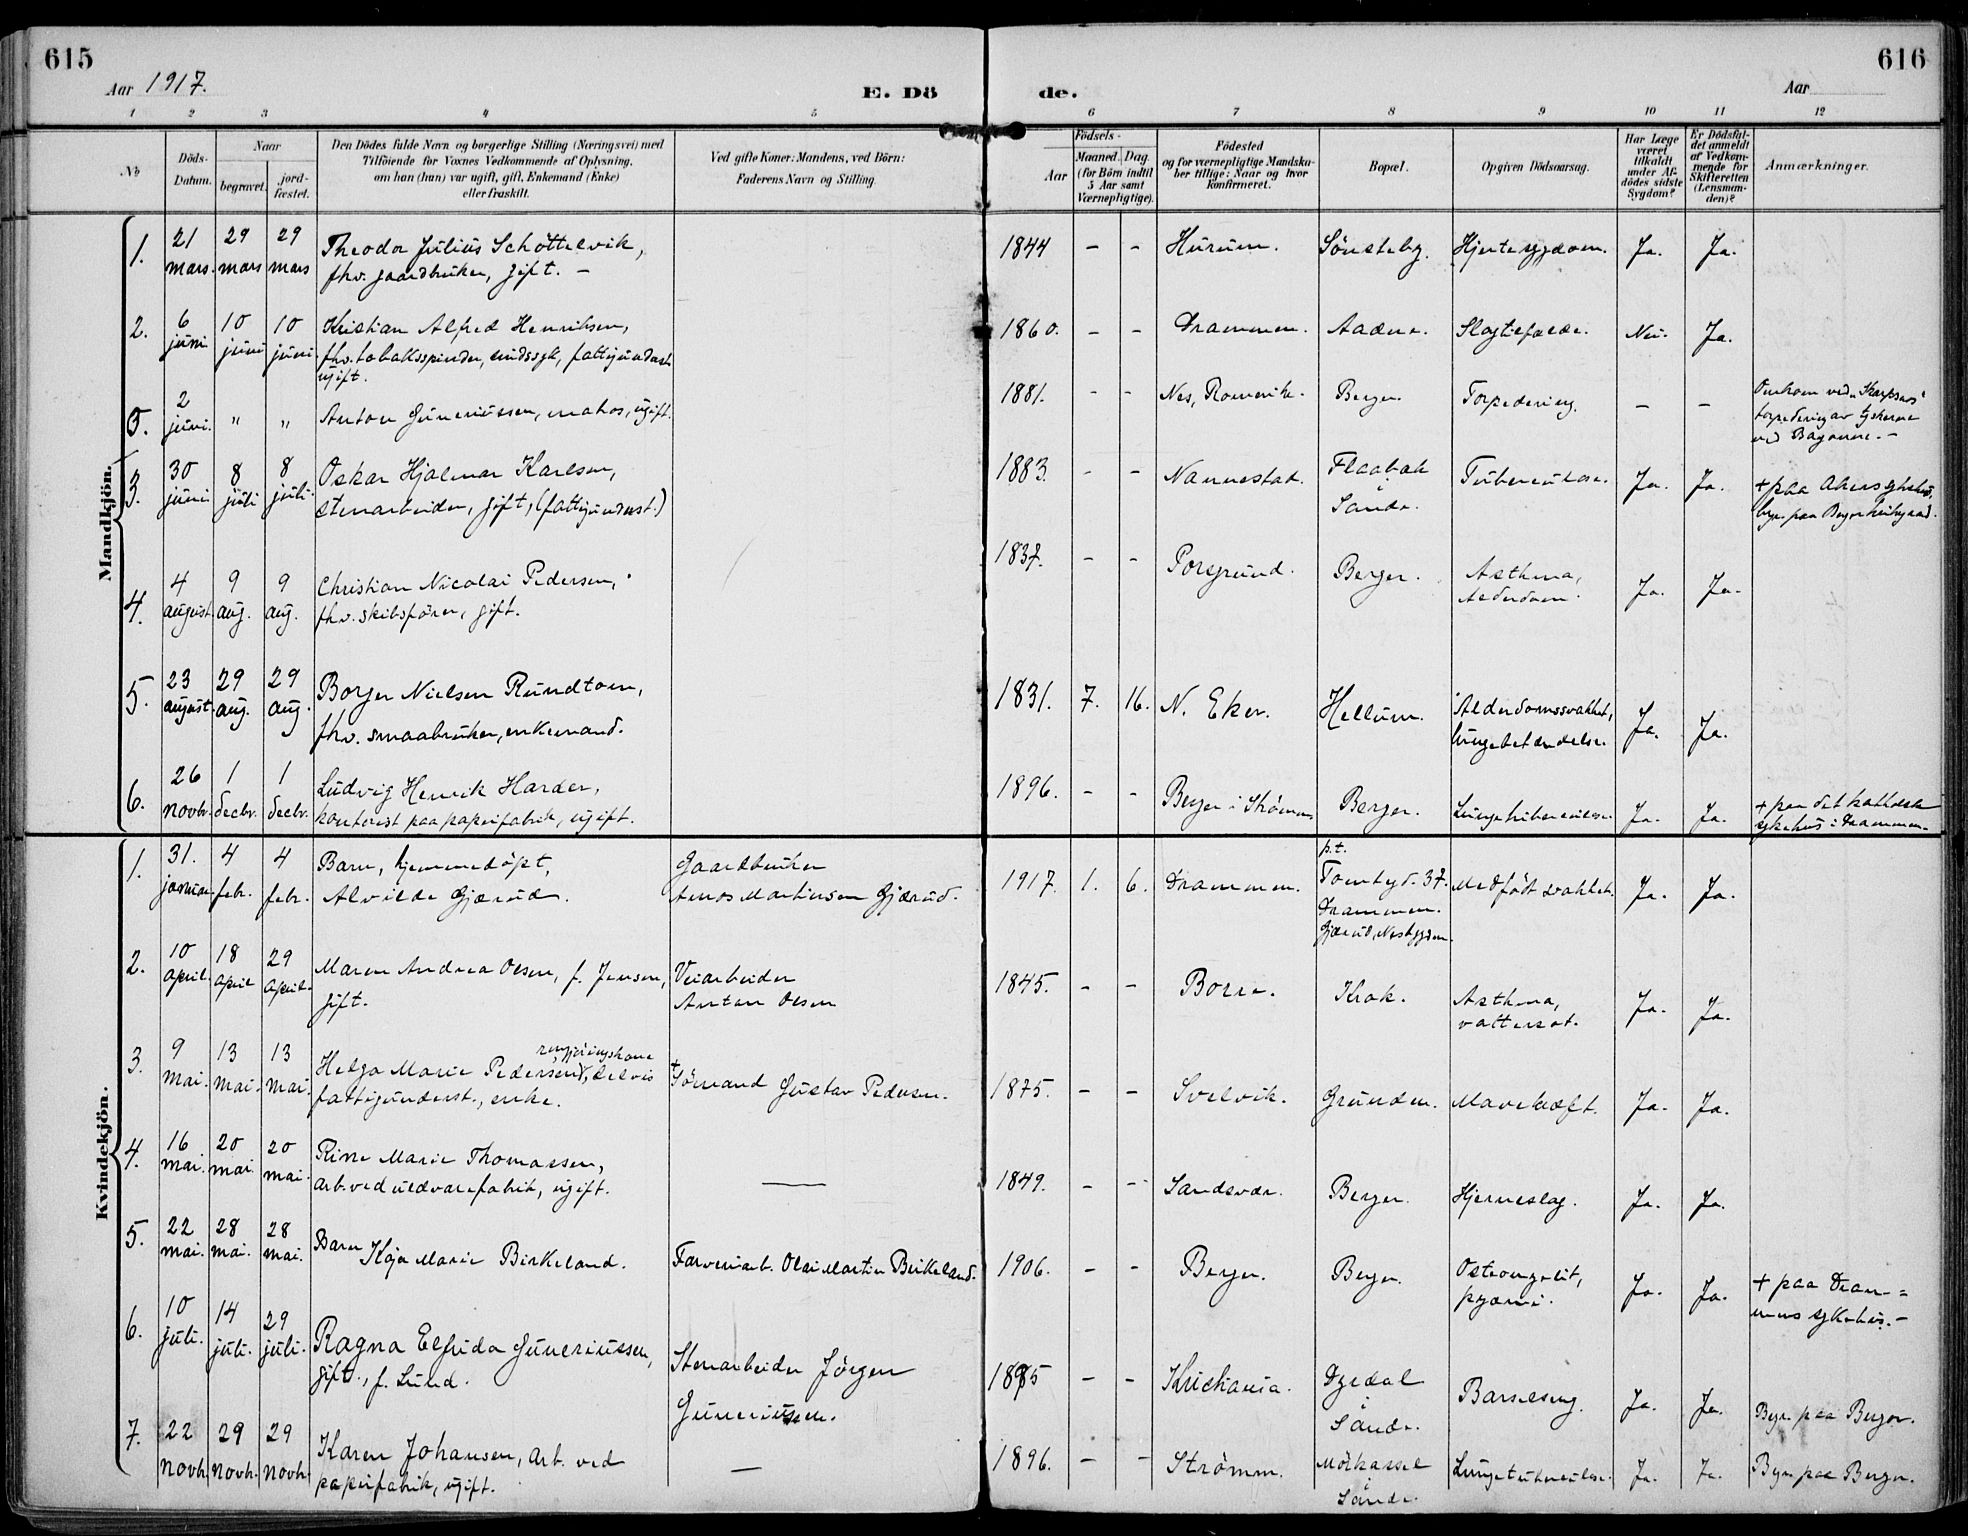 615
616
Aar 1917.
E. Dö
de.
Aar
1 2 3 4 5 6 7 8 9 10 11 12
No
Döds-Datum.
Naar
begravet.
jord-fæstet.
Den Dödes fulde Navn og borgerlige Stilling (Næringsvei) med
Tilföiende for Voxnes Vedkommende af Oplysning,
om han (hun) var ugift, gift, Enkemand (Enke)
eller fraskilt.
Ved gifte Koner: Mandens, ved Börn:
Faderens Navn og Stilling.
Födsels-
Aar
Maaned. Dag.
(for Börn indtil
5 Aar samt
Værnepligtige).
Födested
og for værnepligtige Mandska-
ber tillige: Naar og hvor
konfirmeret.
Bopæl.
Opgiven Dödsaarsag.
Har Læge
været
tilkaldt
under Af-
dödes sidste
Sygdom?
Er Dödsfal-
det anmeldt
af Vedkom-
mende for
Skifteretten
(Lensman-
den)?
Anmærkninger.
Mandkjön.
1. 21 mars. 29 mars 29 mars Theodor Julius Schöttelvik,
fhv. gaardbruker, gift. –
1844 – – Hurum. Sönsteby. Hjertesygdom. Ja. Ja.
2. 6 juni 10 juni 10 juni Kristian Alfred Henriksen,
fhv. tobaksspinder, sindssyk, fattigunderst.
ugift.
1860. – – Drammen. Aadne. Slagtilfælde. Nei. Ja.
0. 2 juni. " " Anton Guneriussen, matros, ugift.
1881. – – Nes, Romerike. Berger. Torpedering. – –
Omkom ved "Skarpsnos"
torpedering av tyskerne
ved Bayonne. –
3. 30 juni 8 juli 8 juli. Oskar Hjalmar Karlsen,
stenarbeider, gift, (fattigunderst.)
1883. – – Nannestad. Flaabak
i
Sande. Tuberculose. Ja. Ja.
+ paa Akers sykehus,
begr. paa Berger kirkegaard.
4. 4 august. 9 aug. 9 aug. Christian Nicolai Pedersen,
fhv. skibsförer, gift.
1837. – – Porsgrund. Berger. Asthma,
Alderdom. Ja. Ja.
5. 23 august. 29 aug. 29 aug. Borger Nielsen Rundtom,
fhv. smaabruker, enkemand.
1831. 7. 16. N. Eker. Hellum. Alderdomssvakhet,
lungebetændelse. Ja. Ja.
6. 26 novbr. 1 decbr. 1 decbr. Ludvig Henrik Harder,
kontorist paa papirfabrik, ugift.
1896. – – Berger i Strömm. Berger. Lungetuberculose. Ja. Ja.
+ paa det katholske
sykehus i Drammen.
Kvindekjön.
1. 31. januar. 4 febr. 4 febr. Barn, hjemmedöpt,
Alvilde Gjærud.
Gaardbruker
Amos Martinsen Gjærud.
1917. 1. 6. Drammen. p.t.
Tomtegd. 37.
Drammen.
Gjærud, Nesbygden. Medfödt svakhet. Ja. Ja.
2. 10 april. 18 april 29 april. Maren Andrea Olsen, f. Jensen,
gift.
Veiarbeider
Anton Olsen
1845. – – Borre. Krok. Asthma,
vattersot. Ja. Ja.
3. 9 mai. 13 mai. 13 mai. rengjöringskone
Helga Marie Pedersen, delvis
fattigunderst., enke.
+ Sömand Gustav Pedersen.
1875. – – Svelvik. Grunden. Mavekræft. Ja. Ja.
4. 16 mai. 20 mai. 20 mai. Rine Marie Thomassen,
arb. ved uldvarefabrik, ugift.
—
1849. – – Sandsvær. Berger. Hjerneslag. Ja. Ja.
5. 22 mai. 28 mai. 28 mai. Barn Kaja Marie Birkeland.
Farveriarb. Olai Martin Birkeland.
1906. – – Berger. Berger. Osteomyelit,
pyæmi. Ja. Ja.
+ paa Dram-
mens sykehus. –
6. 10 juli. 14 juli. 29 juli. Ragna Elfrida Guneriussen,
gift., f. Lund.
Stenarbeider Jörgen
Guneriussen.
1895 – – Kristiania. Dyedal
i
Sande. Barselseng. Ja. Ja.
Begr. paa Berger.
7. 22 novbr. 29 novbr. 29 novbr. Karen Johansen, arb. ved
papirfabrik, ugift.
—
1896. – – Strömm. Mörkassel
i
Sande. Lungetuberculose. Ja. Ja.
Begr. paa Berger.